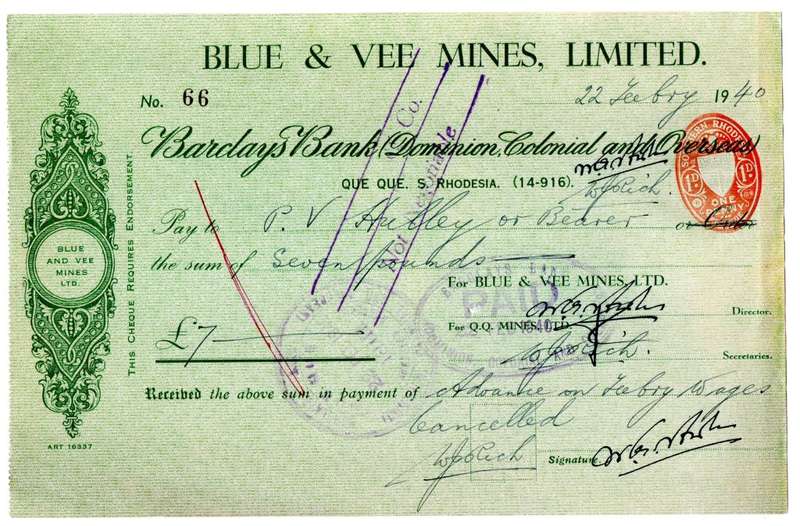 BLUE & VEE MINES, LIMITED.
No. 66
22 Febry 1940
Barclays Bank (Dominion, Colonial and Overseas)
QUE QUE, S. RHODESIA. (14-916).
SOUTHERN RHODESIA
1D. 1D.
ONE PENNY
Pay to P. V. or Bearer or Order
the sum of Seven pounds
Co.
Not Negotiable
For BLUE & VEE MINES, LTD.
PAID
Director.
£7
For Q.Q. MINES, LTD.
Secretaries.
Received the above sum in payment of Advance on Febry Wages
Cancelled
Signature
THIS CHEQUE REQUIRES ENDORSEMENT.
BLUE
AND VEE
MINES
LTD.
ART 16337